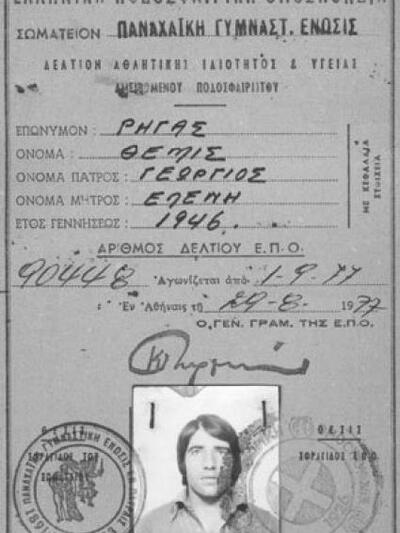 ΕΛΛΗΝΙΚΗ ΠΟΔΟΣΦΑΙΡΙΚΗ ΟΜΟΣΠΟΝΔΙΑ
ΣΩΜΑΤΕΙΟΝ ΠΑΝΑΧΑΪΚΗ ΓΥΜΝΑΣΤ. ΕΝΩΣΙΣ
ΔΕΛΤΙΟΝ ΑΘΛΗΤΙΚΗΣ ΙΔΙΟΤΗΤΟΣ & ΥΓΕΙΑΣ
ΠΟΔΟΣΦΑΙΡΙΣΤΟΥ
ΕΠΩΝΥΜΟΝ : ΡΗΓΑΣ
ΟΝΟΜΑ : ΘΕΜΙΣ
ΟΝΟΜΑ ΠΑΤΡΟΣ : ΓΕΩΡΓΙΟΣ
ΟΝΟΜΑ ΜΗΤΡΟΣ : ΕΛΕΝΗ
ΕΤΟΣ ΓΕΝΝΗΣΕΩΣ : 1946
ΜΕ ΚΕΦΑΛΑΙΑ
ΣΤΟΙΧΕΙΑ
ΑΡΙΘΜΟΣ ΔΕΛΤΙΟΥ Ε.Π.Ο.
90448 Ἀγωνίζεται ἀπό 1-9-77
Ἐν Ἀθήναις τῇ 29-8- 1977
Ο ΓΕΝ. ΓΡΑΜ. ΤΗΣ Ε.Π.Ο.
ΘΕΣΙΣ
ΣΦΡΑΓΙΔΟΣ ΤΟΥ
ΣΩΜΑΤΕΙΟΥ
ΠΑΝΑΧΑΪΚΗ ΓΥΜΝΑΣΤΙΚΗ ΕΝΩΣΙΣ 1891
ΘΕΣΙΣ
ΣΦΡΑΓΙΔΟΣ Ε.Π.Ο.